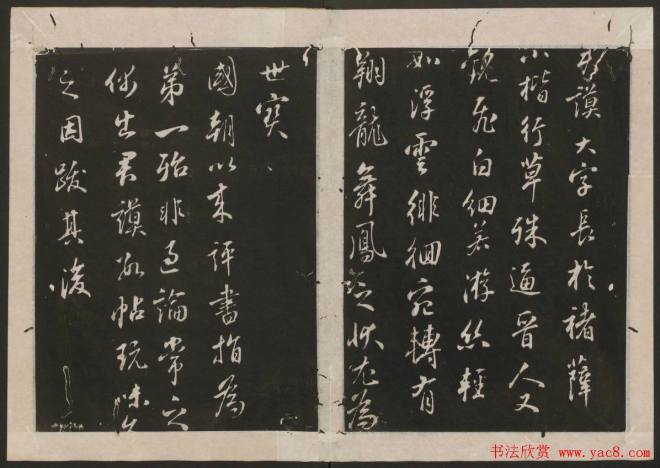 君謨大字長於褚薛
小楷行草殊逼晉人又
觀飛白細若游絲輕
如浮雲徘徊宛轉有
翔龍舞鳳之狀尤為
世寶
國朝以來評書指為
第一殆非過論常之
偶出君謨數帖玩味久
之因跋其後
书法欣赏 www.yac8.com